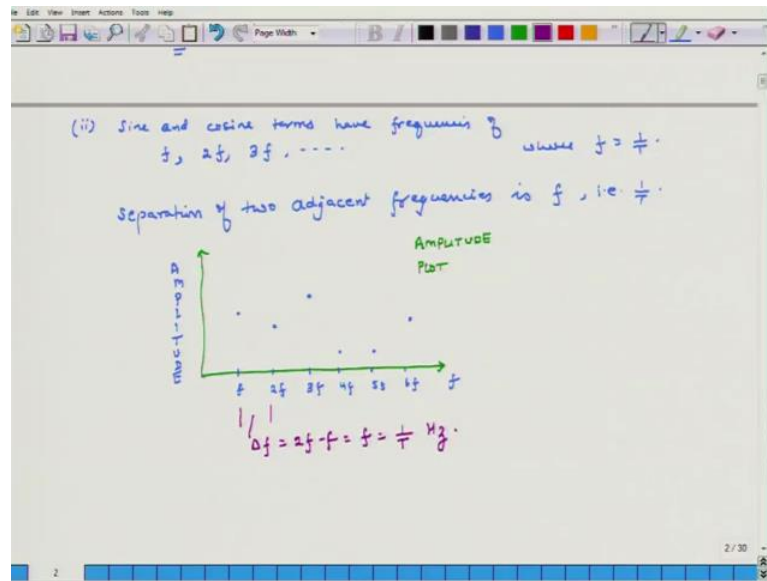 Edit View Insert Actions Tools Help
Page Width
B I
=
(ii) Sine and cosine terms have frequencies of
f, 2f, 3f, .... where f = 1/T.
Separation of two adjacent frequencies is f, i.e. 1/T.
AMPLITUDE
PLOT
AMPLITUDE
f 2f 3f 4f 5f 6f f
Δf = 2f - f = f = 1/T Hz.
2 / 30
2